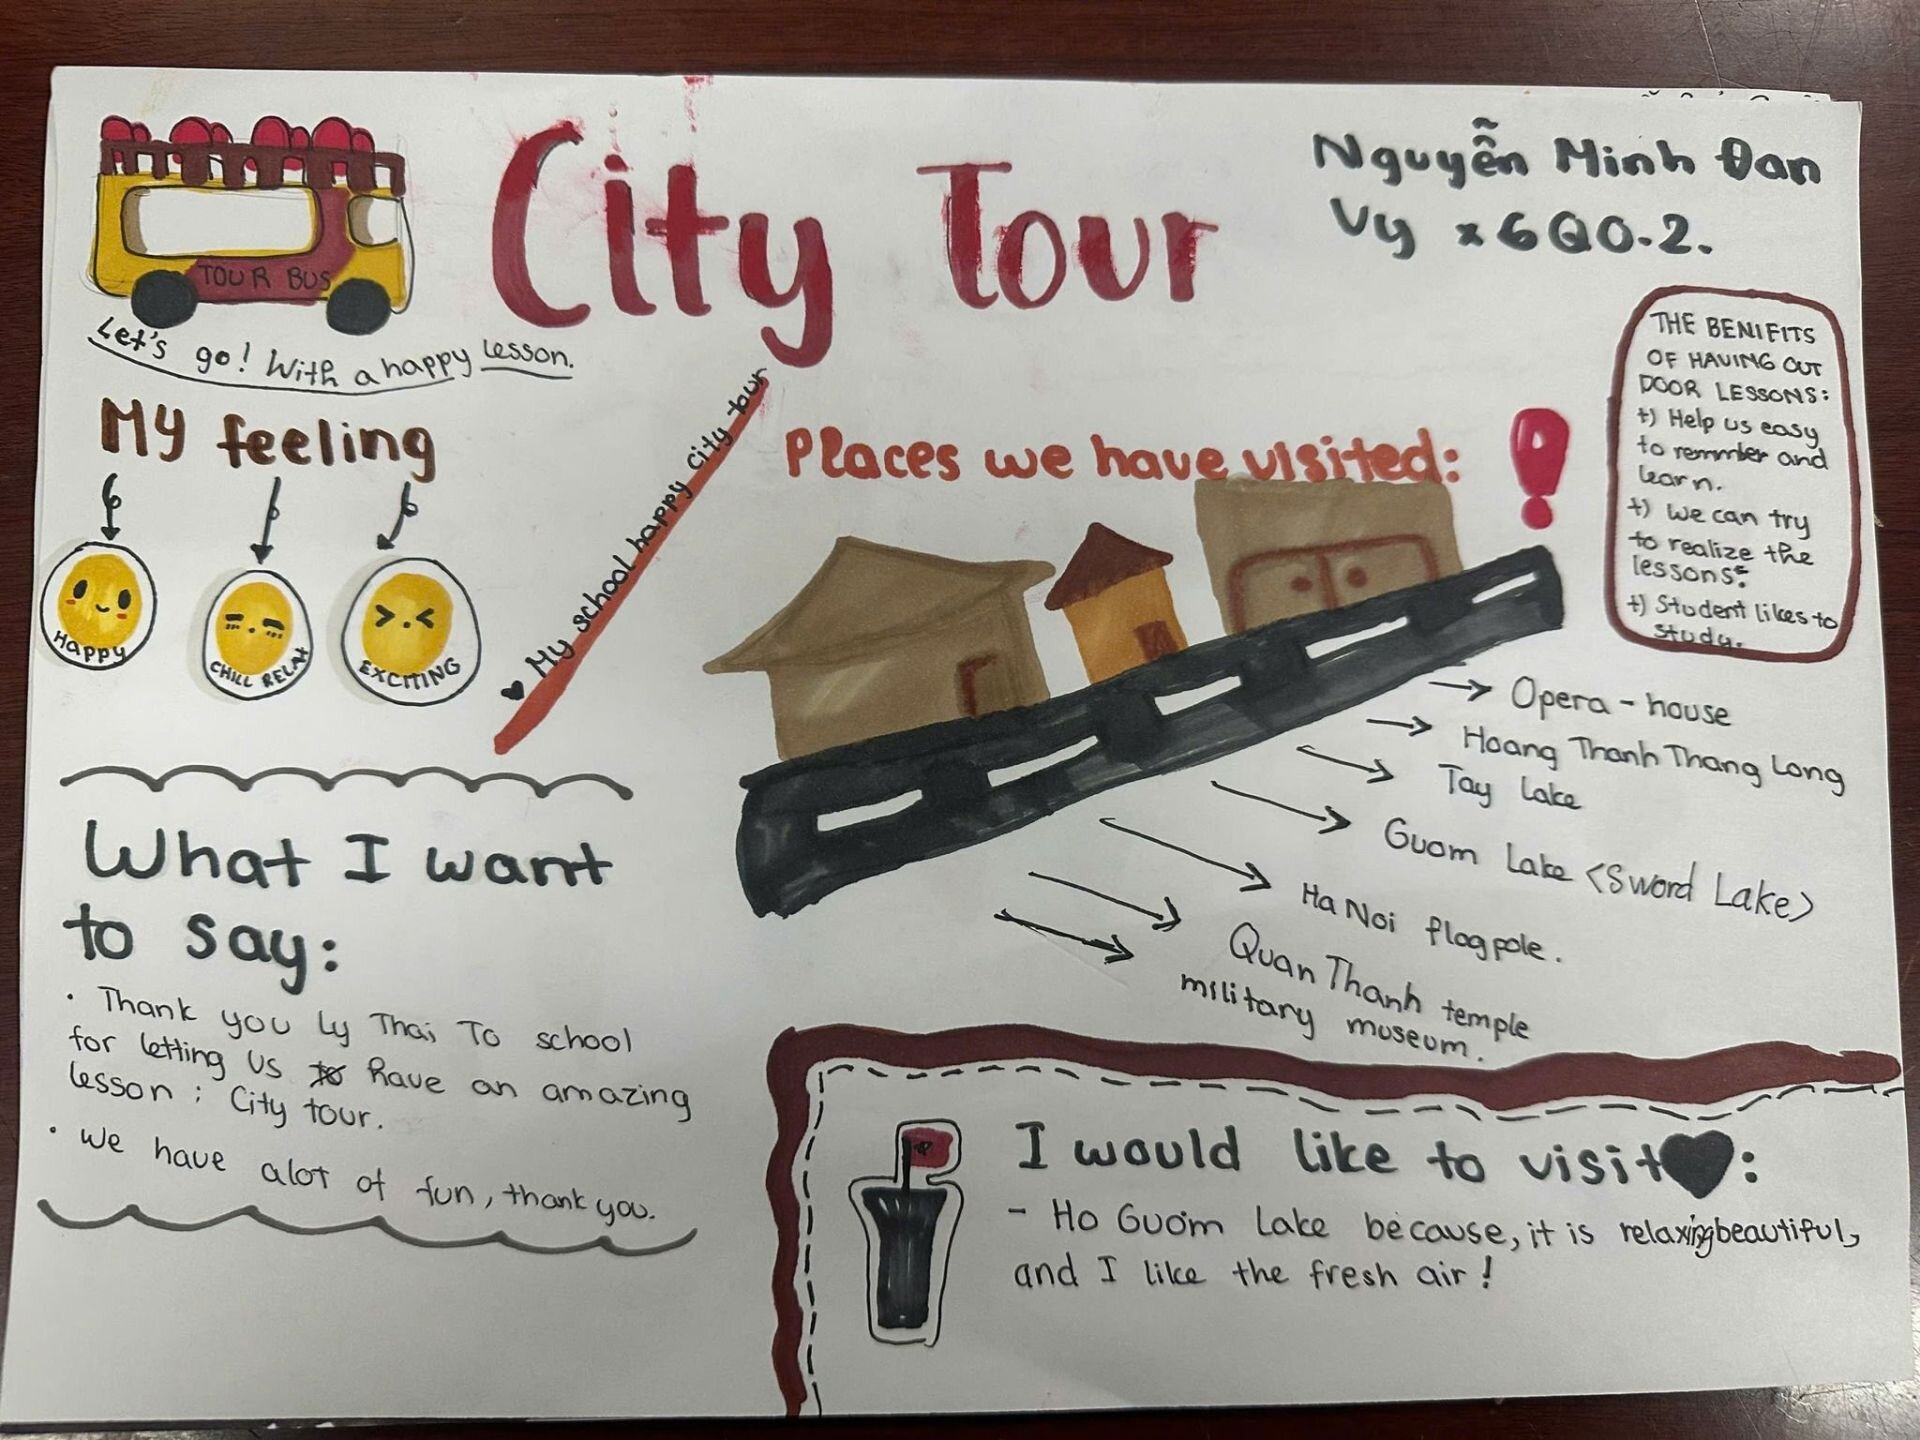 City Tour
Nguyễn Minh Đan
Vy x 6QO.2.
TOUR BUS
Let's go! With a happy lesson.
My feeling
HAPPY
CHILL RELAX
EXCITING
My school happy city tour
Places we have visited:
THE BENIFITS
OF HAVING OUT
DOOR LESSONS:
+) Help us easy
to remmber and
learn.
+) We can try
to realize the
lessons.
+) Student likes to
study.
Opera - house
Hoang Thanh Thang Long
Tay Lake
Guom Lake <Sword Lake>
Ha Noi flagpole.
Quan Thanh temple
military museum.
What I want
to say:
• Thank you Ly Thai To school
for letting us have an amazing
lesson : City tour.
• We have alot of fun, thank you.
I would like to visit:
- Ho Guom Lake because, it is relaxing beautiful,
and I like the fresh air!